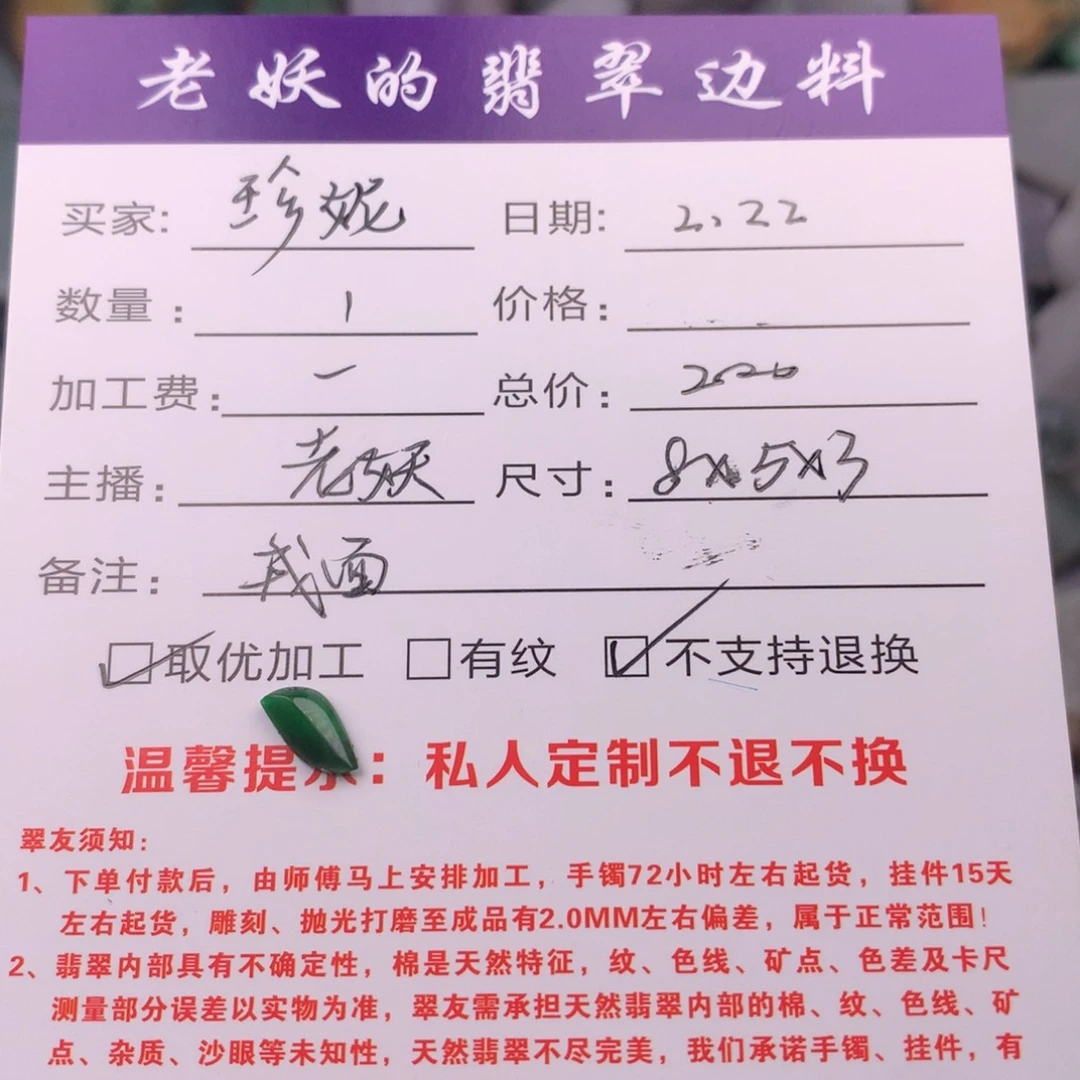 老妖的翡翠边料
买家: 珍妮 日期: 2.22
数量: 1 价格:
加工费: 一 总价:
主播: 老妖 尺寸: 8x5x3
备注: 戒面
取优加工 有纹 不支持退换
温馨提示：私人定制不退不换
翠友须知：
1、下单付款后，由师傅马上安排加工，手镯72小时左右起货，挂件15天
左右起货，雕刻、抛光打磨至成品有2.0MM左右偏差，属于正常范围！
2、翡翠内部具有不确定性，棉是天然特征，纹、色线、矿点、色差及卡尺
测量部分误差以实物为准，翠友需承担天然翡翠内部的棉、纹、色线、矿
点、杂质、沙眼等未知性，天然翡翠不尽完美，我们承诺手镯、挂件，有